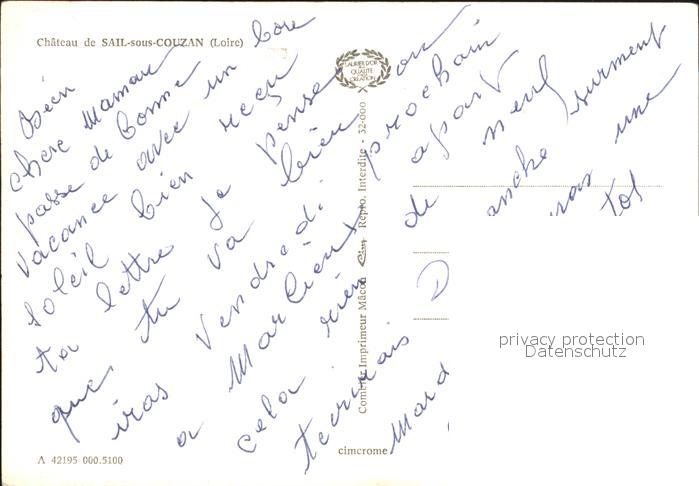 Château de SAIL-sous-COUZAN (Loire)
LAURIER D'OR
DE
QUALITÉ
CRÉATION
Bien
chere Maman
passe de Bonne
vacance avec un bore
soleil bien reçu
ta lettre je pense
que tu va bien on
iras vendredi prochain
a Marlieux apart
cela rien de neuf
Tecrirais surment
une
Combier Imprimeur Mâcon Cim Repro. Interdite - 32-000
cimcrome
A 42195-000.5100
privacy protection
Datenschutz